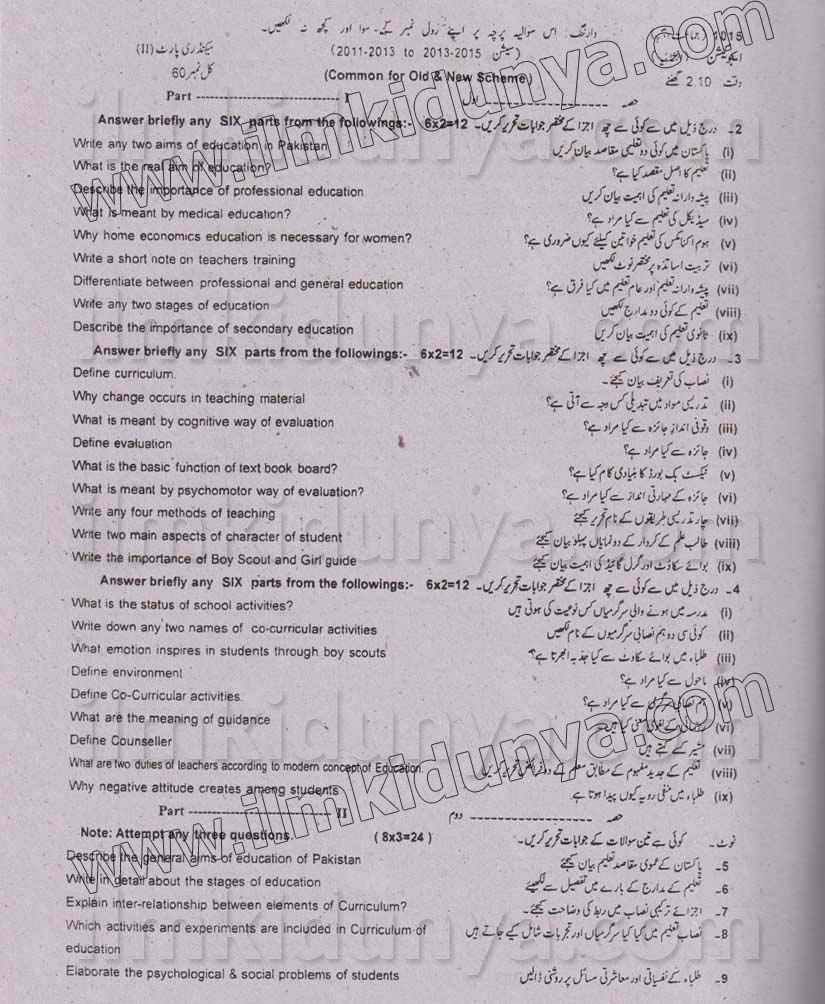 وارننگ: اس سوالیہ پرچہ پر اپنے رول نمبر کے سوا اور کچھ نہ لکھیں۔
1015
(سیشن 2011-2013 to 2013-2015) سیکنڈری پارٹ (II)
ایجوکیشن
(Common for Old & New Scheme)
وقت 2.10 گھنٹے کل نمبر 60
Part ------------------------------ I حصہ ------------------------------ اول
Answer briefly any SIX parts from the followings:- 6x2=12 2۔ درج ذیل میں سے کوئی سے چھ اجزا کے مختصر جوابات تحریر کریں۔
Write any two aims of education in Pakistan (i) پاکستان میں کوئی دو تعلیمی مقاصد بیان کریں
What is the real aim of education? (ii) تعلیم کا اصل مقصد کیا ہے؟
Describe the importance of professional education (iii) پیشہ وارانہ تعلیم کی اہمیت بیان کریں
What is meant by medical education? (iv) میڈیکل کی تعلیم سے کیا مراد ہے؟
Why home economics education is necessary for women? (v) ہوم اکنامکس کی تعلیم خواتین کیلئے کیوں ضروری ہے؟
Write a short note on teachers training (vi) تربیت اساتذہ پر مختصر نوٹ لکھیں
Differentiate between professional and general education (vii) پیشہ وارانہ تعلیم اور عام تعلیم میں کیا فرق ہے؟
Write any two stages of education (viii) تعلیم کے کوئی دو مدارج لکھیں
Describe the importance of secondary education (ix) ثانوی تعلیم کی اہمیت بیان کریں
Answer briefly any SIX parts from the followings:- 6x2=12 3۔ درج ذیل میں سے کوئی سے چھ اجزا کے مختصر جوابات تحریر کریں۔
Define curriculum. (i) نصاب کی تعریف بیان کیجئے۔
Why change occurs in teaching material (ii) تدریسی مواد میں تبدیلی کس وجہ سے آتی ہے؟
What is meant by cognitive way of evaluation (iii) وقوفی انداز جائزہ سے کیا مراد ہے؟
Define evaluation (iv) جائزہ سے کیا مراد ہے؟
What is the basic function of text book board? (v) ٹیکسٹ بک بورڈ کا بنیادی کام کیا ہے؟
What is meant by psychomotor way of evaluation? (vi) جائزہ کے مہارتی انداز سے کیا مراد ہے؟
Write any four methods of teaching (vii) چار تدریسی طریقوں کے نام تحریر کیجئے
Write two main aspects of character of student (viii) طالب علم کے کردار کے دو نمایاں پہلو بیان کیجئے
Write the importance of Boy Scout and Girl guide (ix) بوائے سکاؤٹ اور گرل گائیڈ کی اہمیت بیان کیجئے
Answer briefly any SIX parts from the followings:- 6x2=12 4۔ درج ذیل میں سے کوئی سے چھ اجزا کے مختصر جوابات تحریر کریں۔
What is the status of school activities? (i) مدرسہ میں ہونے والی سرگرمیاں کس نوعیت کی ہوتی ہیں
Write down any two names of co-curricular activities (ii) کوئی سی دو ہم نصابی سرگرمیوں کے نام لکھیں
What emotion inspires in students through boy scouts (iii) طلباء میں بوائے سکاوٹ سے کیا جذبہ ابھرتا ہے؟
Define environment (iv) ماحول سے کیا مراد ہے؟
Define Co-Curricular activities. (v) ہم نصابی سے کیا مراد ہے؟
What are the meaning of guidance (vi) کے لغوی معنی کیا ہیں
Define Counseller (vii) مشیر کسے کہتے ہیں
What are two duties of teachers according to modern concept of Education. (viii) تعلیم کے جدید مفہوم کے مطابق معلم کے دو فرائض تحریر کریں
Why negative attitude creates among students (ix) طلباء میں منفی رویہ کیوں پیدا ہوتا ہے
Part ------------------------------ II حصہ ------------------------------ دوم
Note: Attempt any three questions. (8x3=24) نوٹ۔ کوئی سے تین سوالات کے جوابات تحریر کریں۔
Describe the general aims of education of Pakistan 5۔ پاکستان کے عمومی مقاصد تعلیم بیان کیجئے
Write in detail about the stages of education 6۔ تعلیم کے مدارج کے بارے میں تفصیل سے لکھیئے
Explain inter-relationship between elements of Curriculum? 7۔ اجزائے ترکیبی نصاب میں ربط کی وضاحت کیجئے۔
Which activities and experiments are included in Curriculum of 8۔ نصاب تعلیم میں کیا کیا سرگرمیاں اور تجربات شامل کیے جاتے ہیں
education
Elaborate the psychological & social problems of students 9۔ طلباء کے نفسیاتی اور معاشرتی مسائل پر روشنی ڈالیں
www.ilmkidunya.com
www.ilmkidunya.com
ilmkidunya.com
ilmkidunya.com
ilmkidunya.com
ilmkidunya.com
ilmkidunya.com